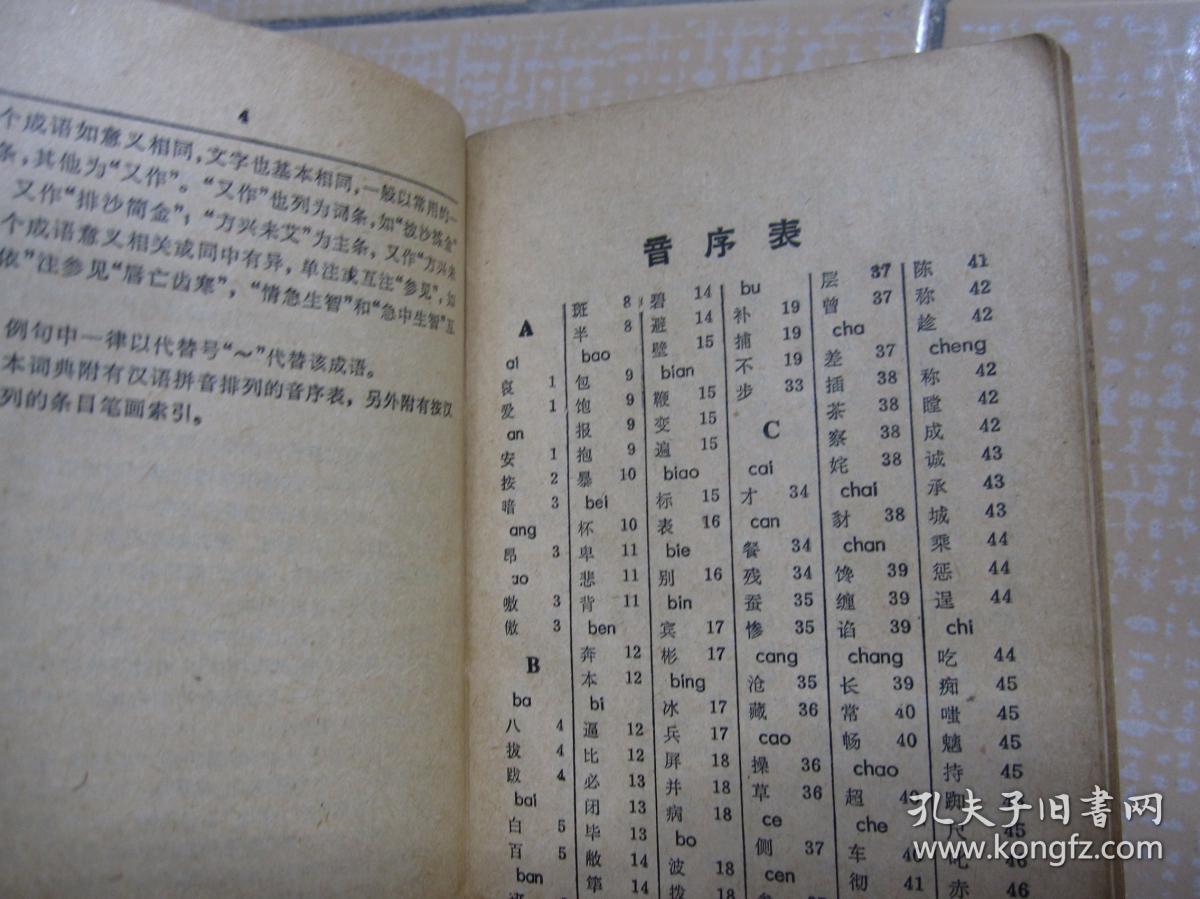 4
个成语如意义相同，文字也基本相同，一般以常用的一
条，其他为“又作”。“又作”也列为词条，如“披沙拣金”
又作“排沙简金”；“方兴未艾”为主条，又作“方兴未
个成语意义相关或同中有异，单注或互注“参见”，如
依”注参见“唇亡齿寒”，“情急生智”和“急中生智”互
例句中一律以代替号“～”代替该成语。
本词典附有汉语拼音排列的音序表，另外附有按汉
列的条目笔画索引。
音序表
A
ai
哀 1
爱 1
an
安 1
按 2
暗 3
ang
昂 3
ao
嗷 3
傲 3
B
ba
八 4
拔 4
跋 4
bai
白 5
百 5
ban
斑 8
半 8
bao
包 9
饱 9
报 9
抱 9
暴 10
bei
杯 10
卑 11
悲 11
背 11
ben
奔 12
本 12
bi
逼 12
比 12
必 13
闭 13
毕 13
敝 14
筚 14
碧 14
避 14
壁 15
bian
鞭 15
变 15
遍 15
biao
标 15
表 16
bie
别 16
bin
宾 17
彬 17
bing
冰 17
兵 17
屏 18
并 18
病 18
bo
波 18
拨 18
bu
补 19
捕 19
不 19
步 33
C
cai
才 34
can
餐 34
残 34
蚕 35
惨 35
cang
沧 35
藏 36
cao
操 36
草 36
ce
侧 37
cen
层 37
曾 37
cha
差 37
插 38
茶 38
察 38
姹 38
chai
豺 38
chan
馋 39
缠 39
谄 39
chang
长 39
常 40
畅 40
chao
超
che
车 40
彻 41
陈 41
称 42
趁 42
cheng
称 42
瞠 42
成 42
诚 43
承 43
城 43
乘 44
惩 44
逞 44
chi
吃 44
痴 45
嗤 45
魑 45
持 45
踟
尺 45
叱 46
赤 46
孔夫子旧书网
www.kongfz.com